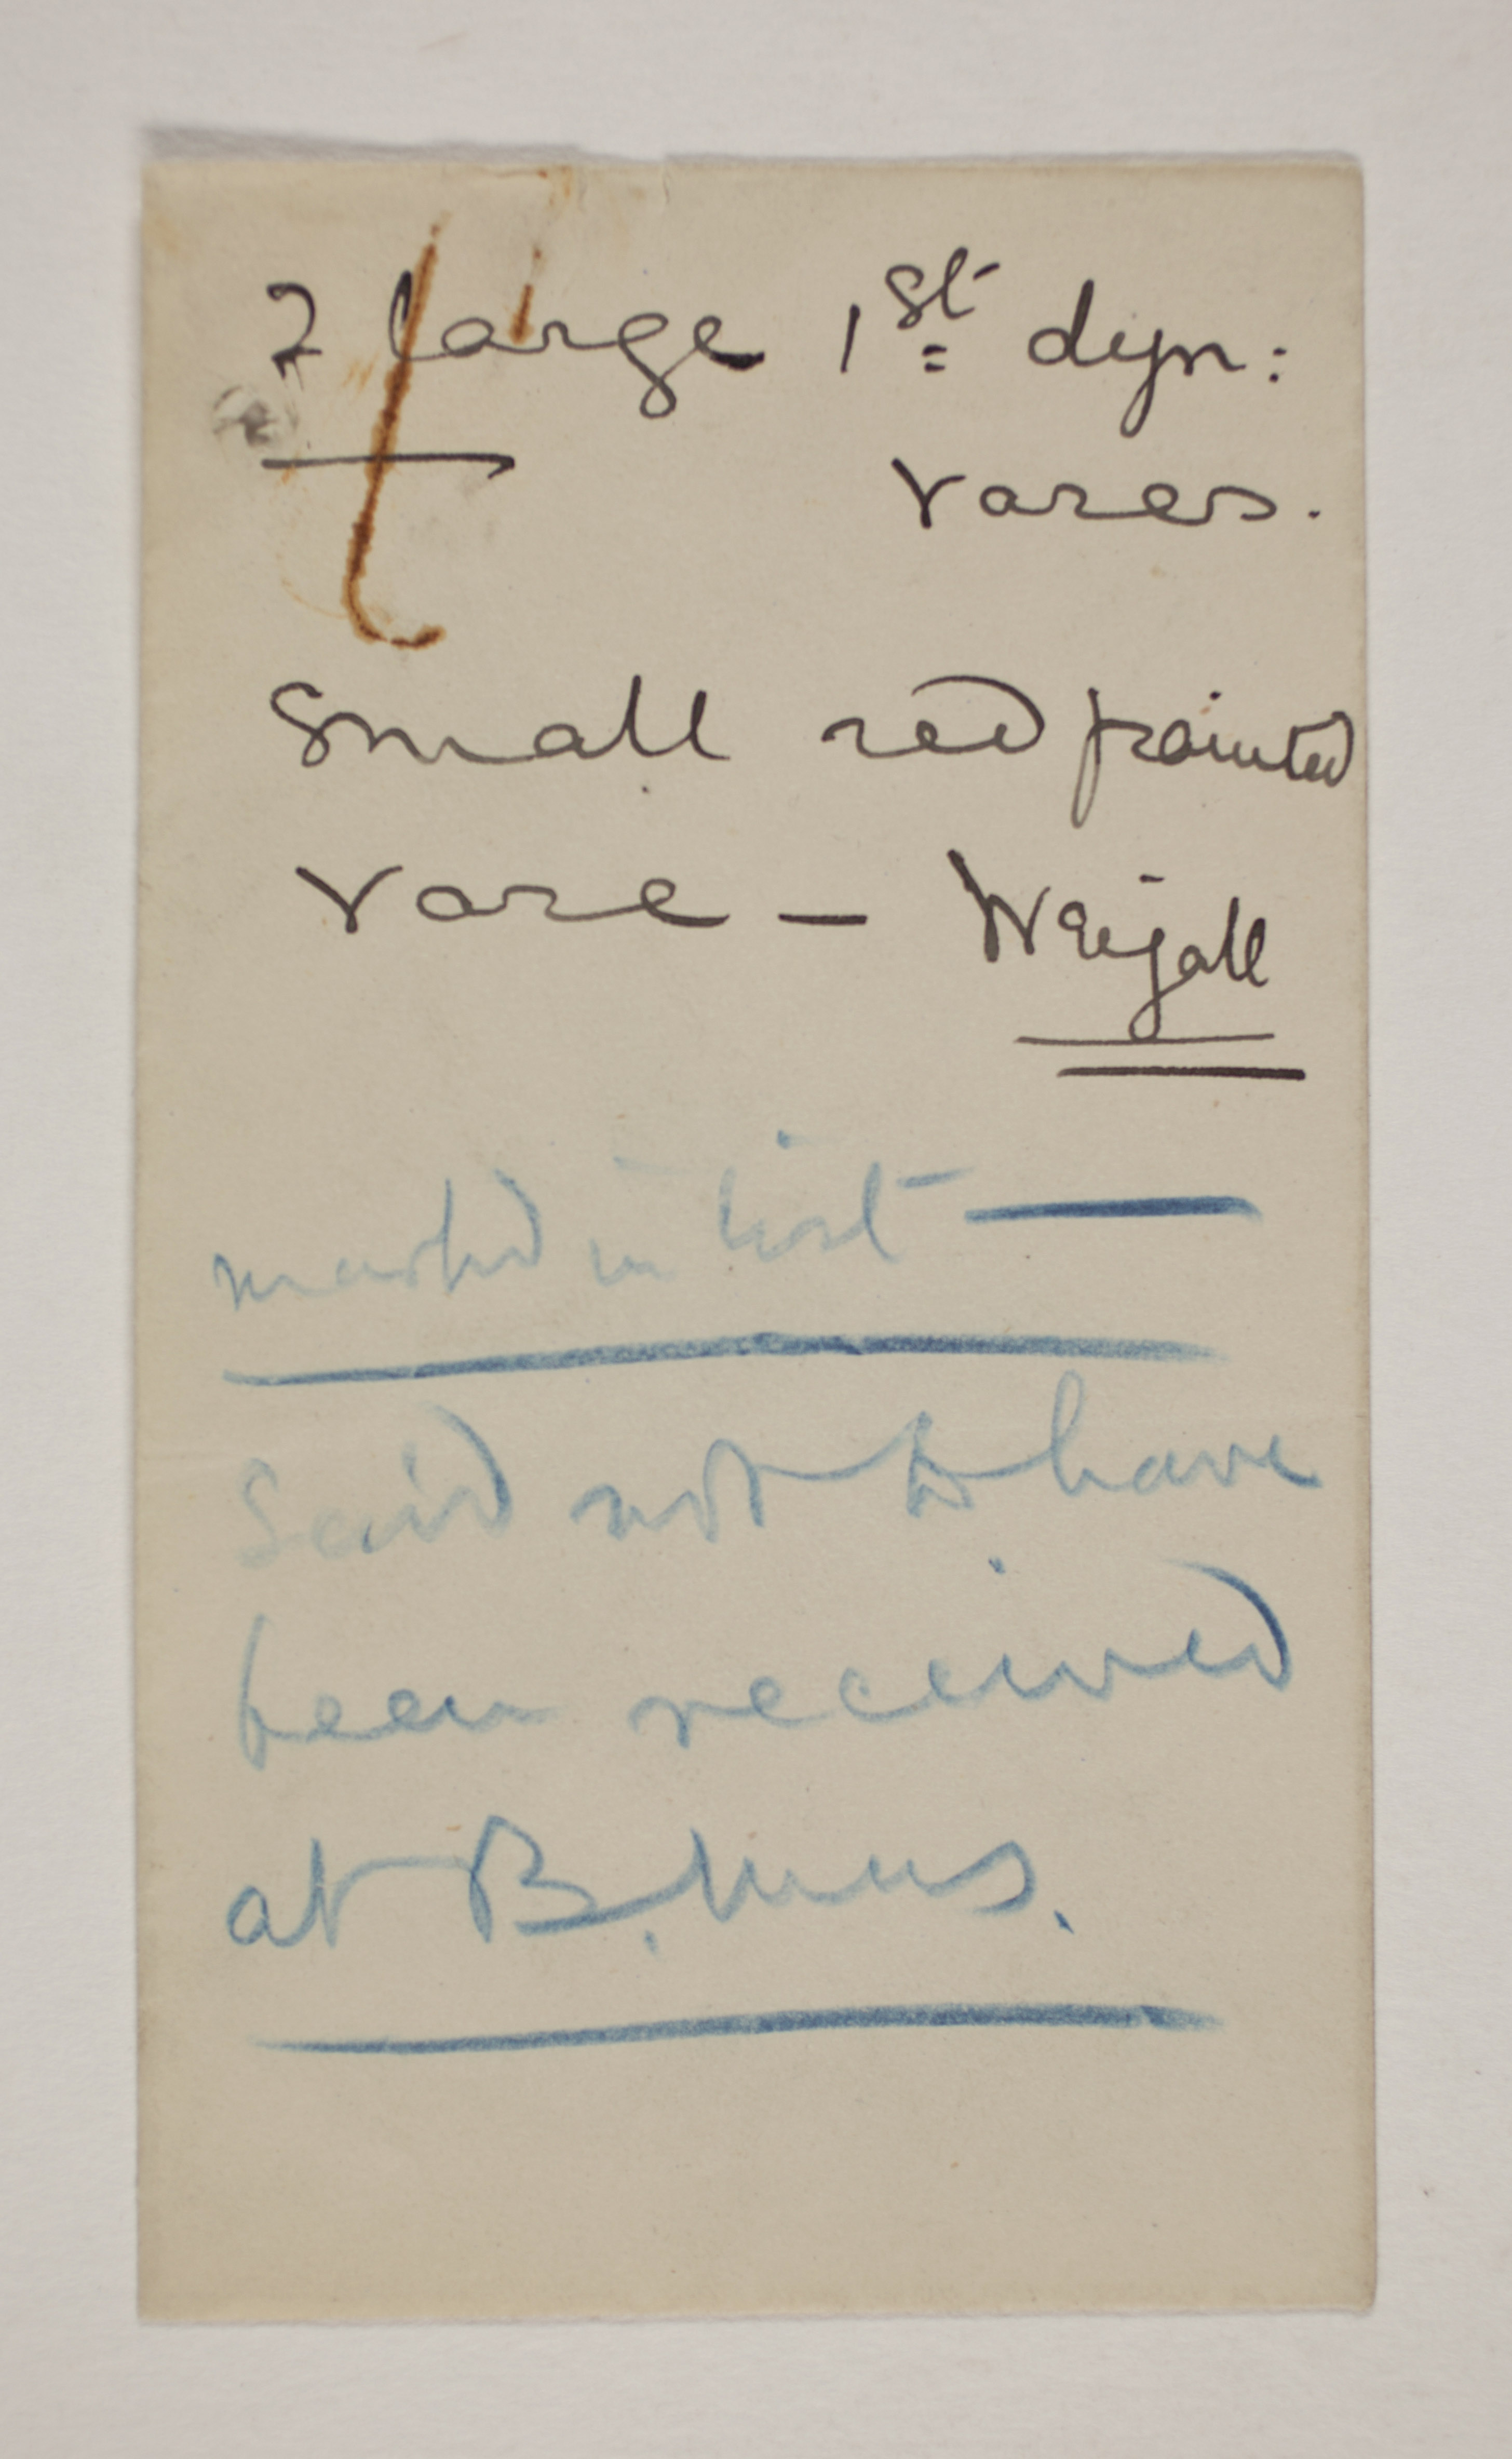 2 large 1st dyn:
vases.
Small red painted
vase — Weigall
marked in list —
Said not to have
been received
at B. Mus.